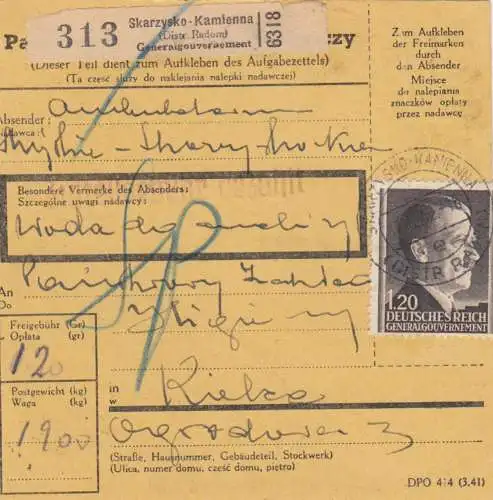 313
Skarzysko-Kamienna
(Distr. Radom)
Generalgouvernement
6318
(Dieser Teil dient zum Aufkleben des Aufgabezettels)
(Ta część służy do naklejania nalepki nadawczej)
Zum Aufkleben
der Freimarken
durch
den Absender
Miejsce
do nalepiania
znaczków opłaty
przez nadawcę
Absender:
Nadawca:
Besondere Vermerke des Absenders:
Szczególne uwagi nadawcy:
Woda do analizy
An
Do
Państwowy Zakład
Higieny
1.20
DEUTSCHES REICH
GENERALGOUVERNEMENT
Freigebühr (Gr)
Opłata (gr)
120
Postgewicht (kg)
Waga (kg)
1900
in
w
Kielce
Ogrodowa 3
(Straße, Hausnummer, Gebäudeteil, Stockwerk)
(Ulica, numer domu, część domu, piętro)
DPO 414 (3.41)